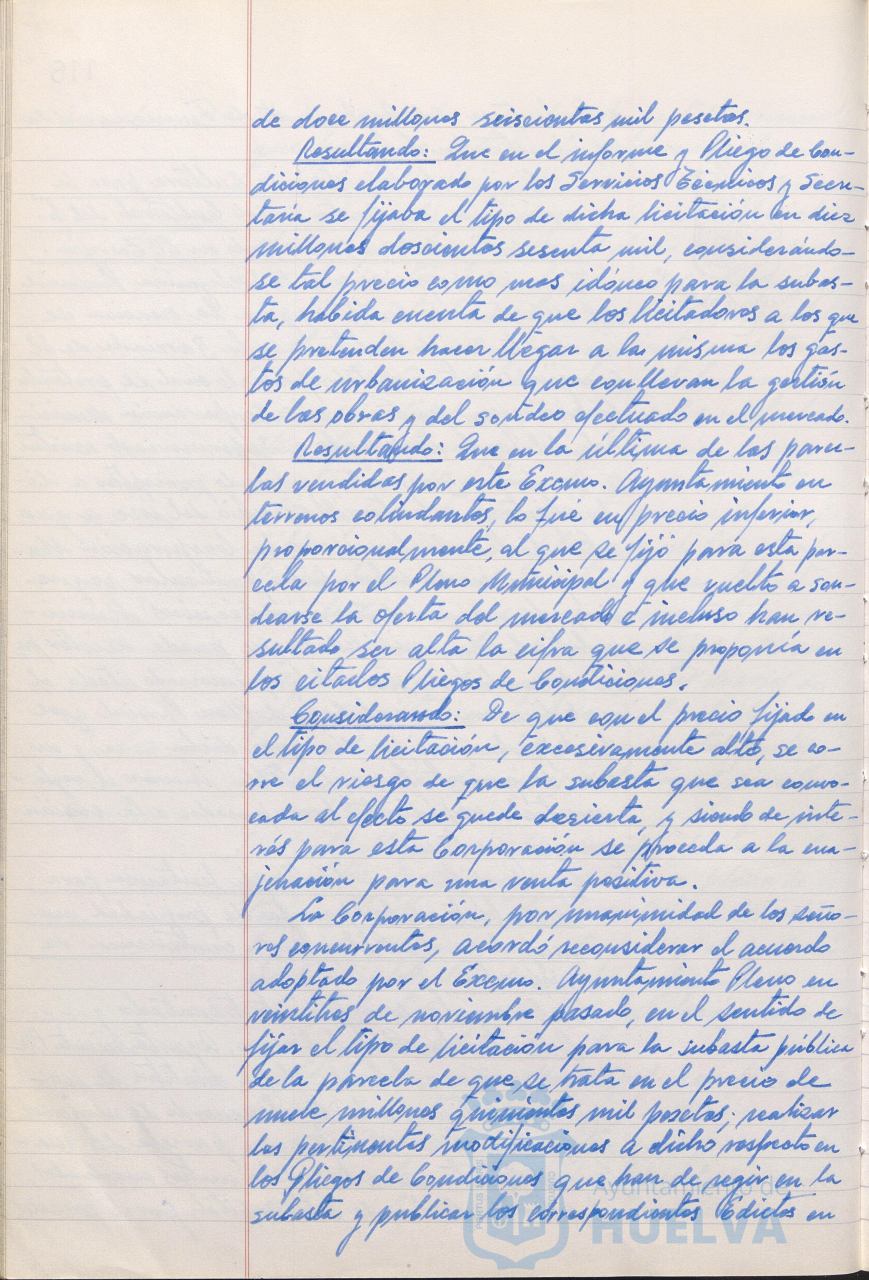 de doce millones seiscientas mil pesetas.
Resultando: Que en el informe y Pliego de Con-
diciones elaborado por los Servicios Técnicos y Secre-
taría se fijaba el tipo de dicha licitación en diez
millones doscientos sesenta mil, considerándo-
se tal precio como mas idóneo para la subas-
ta, habida cuenta de que los licitadores a los que
se pretenden hacer llegar a la misma los gas-
tos de urbanización que conllevan la gestión
de las obras y del sondeo efectuado en el mercado.
Resultando: Que en la última de las parce-
las vendidas por este Excmo. Ayuntamiento en
terrenos colindantes, lo fué en precio inferior,
proporcionalmente, al que se fijó para esta par-
cela por el Pleno Municipal y que vuelto a son-
dearse la oferta del mercado e incluso han re-
sultado ser alta la cifra que se proponía en
los citados Pliegos de Condiciones.
Considerando: De que con el precio fijado en
el tipo de licitación, excesivamente alto, se co-
rre el riesgo de que la subasta que sea convo-
cada al efecto se quede desierta, y siendo de inte-
rés para esta Corporación se proceda a la ena-
jenación para una venta positiva.
La Corporación, por unanimidad de los seño-
res concurrentes, acordó reconsiderar el acuerdo
adoptado por el Excmo. Ayuntamiento Pleno en
veintitres de noviembre pasado, en el sentido de
fijar el tipo de licitación para la subasta pública
de la parcela de que se trata en el precio de
nueve millones quinientas mil pesetas; realizar
las pertinentes modificaciones a dicho respecto en
los Pliegos de Condiciones que han de regir en la
subasta y publicar los correspondientes Edictos en
Ayuntamiento de
HUELVA